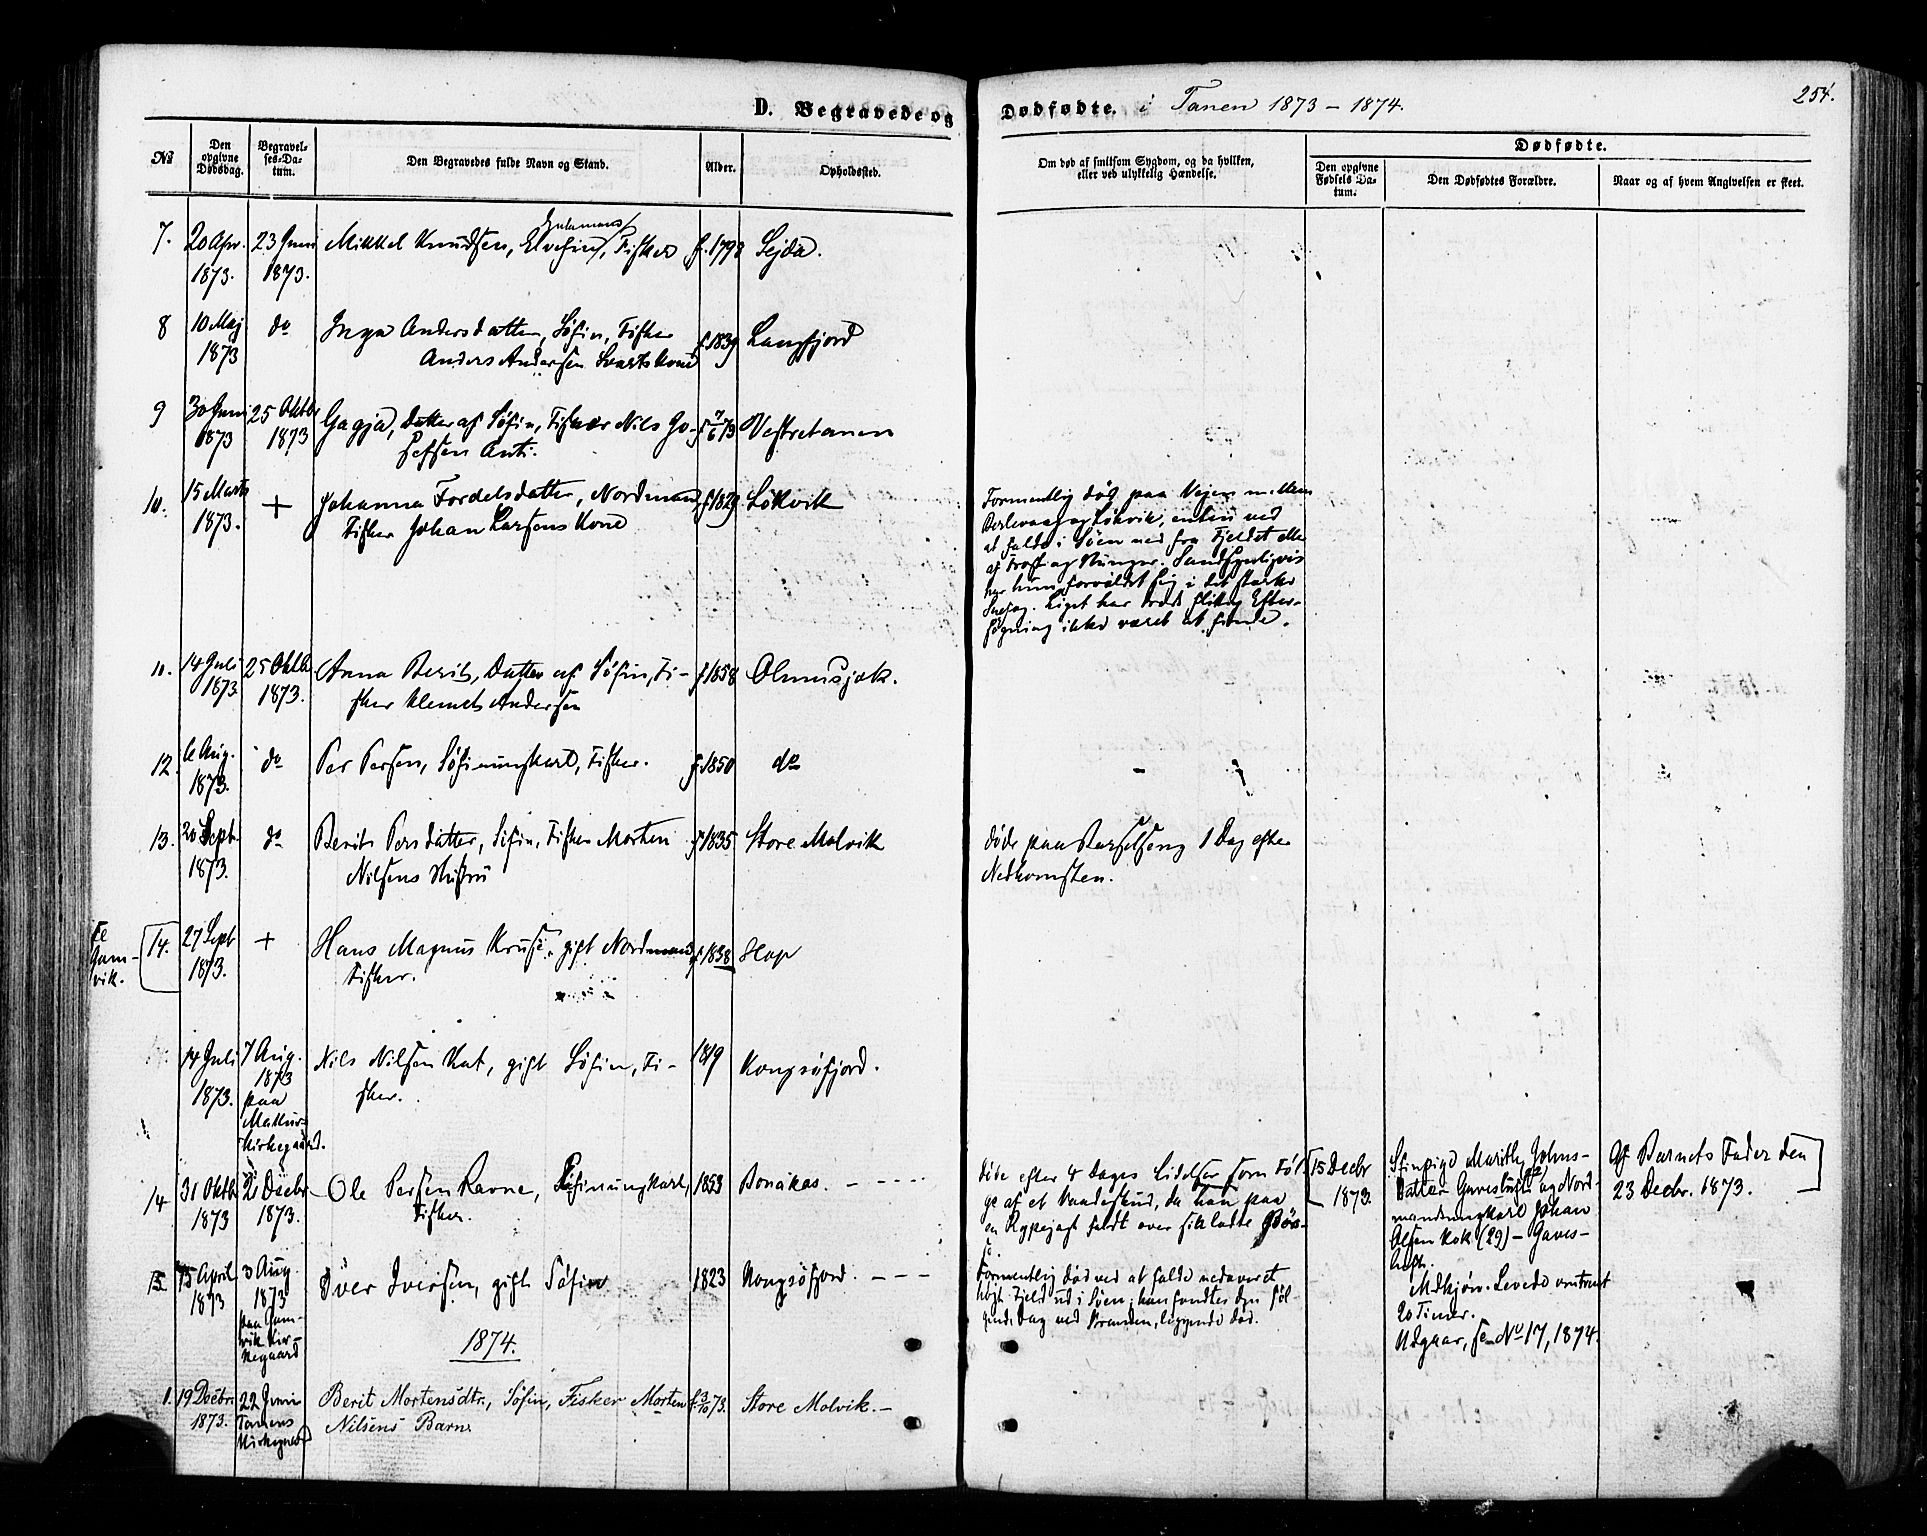 254.
D. Begravede og Dødfødte. i Tanen 1873 – 1874.
Nº
Den opgivne Dødsdag.
Begravelses-Datum.
Den Begravedes fulde Navn og Stand.
Alder.
Opholdssted.
Om død af smitsom Sygdom, og da hvilken, eller ved ulykkelig Hændelse.
Dødfødte.
Den opgivne Fødsels Datum.
Den Dødfødtes Forældre.
Naar og af hvem Angivelsen er skeet.
7. 20 Apr. 1873. 23 Juni 1873. Mikkel Knudsen, Elvefin, Fisker f. 1798 Sejda.
8 10 Maj 1873 do Inga Andersdatter, Søfin, Fisker
Anders Andersen Svarts Kone f 1839 Langfjord
9 30 Juni 1873 25 Oktbr 1873 Gagja, Datter af Søfin, Fisker Nils Jo-
sefsen Anti. f 7/6 73 Vestretanen
10. 15 Marts 1873. + Johanna Fordelsdatter, Nordmand,
Fisker Johan Larsens Kone f 1829 Løkvik
Formentlig død paa Vejen mellem
Berlevaag og Løkvik, enten ved
at falde i Søen ned fra Fjeldet eller
af Frost og Hunger. Sandsynligvis
har hun forvildet sig i det stærke
Snefog. Liget har trods flittig Efter-
søgning ikke været at finde.
11. 14 Juli 1873 25 Oktbr 1873. Anna Berit, Datter af Søfin, Fi-
sker Klemet Andersen f 1858 Olmusjok.
12. 6 Aug. 1873. do Per Persen, Søfinungkarl, Fisker. f 1850 do
13. 20 Sept 1873. do Berit Persdatter, Søfin, Fisker Morten
Nilsens Hustru f 1835 Store Molvik
døde paa Barselseng 1 Dag efter
Nedkomsten.
Se Gam-
vik.
14. 27 Sept 1873. + Hans Magnus Kruse, gift Nordmand,
Fisker. f 1838 Hop
14 Juli 1873. 7 Aug. 1873 paa Makur-
Kirkegaard. Nils Nilsen Kat, gift Søfin, Fi-
sker. 1819 Kongsøfjord.
14 31 Oktbr 1873 2 Decbr 1873. Ole Persen Ravna, Søfinungkarl,
Fisker. 1853 Bonakas. – – – –
døde efter 4 Dages Lidelser som Føl-
ge af et Vaadeskud, da han paa
en Rypejagt faldt over sin ladte Bøs-
se.
15 Decbr 1873.
Sfinpige Marith Johns-
Datter Gavesluft og Nord-
mandsungkarl Johan
Olsen Kok (29) – Gaves-
luft.
Mdkjøn. Levede omtrent
20 Timer.
Udgaar, se No 17, 1874.
Af Barnets Fader den
23 Decbr. 1873.
15 15 April 1873 3 Aug. 1873 paa Gam-
vik Kir-
kegaard Iver Iversen, gift Søfin 1823 Kongsøfjord. – – –
Formentlig død ved at falde ned av et
højt Fjeld ud i Søen; han fandtes den føl-
gende Dag ved Stranden, liggende død.
1874.
1. 19 Decbr. 1873. 22 Juni Tanens Kirkegaard Berit Mortensdtr., Søfin, Fisker Morten
Nilsens Barn. f. 3/10 73. Store Molvik. –